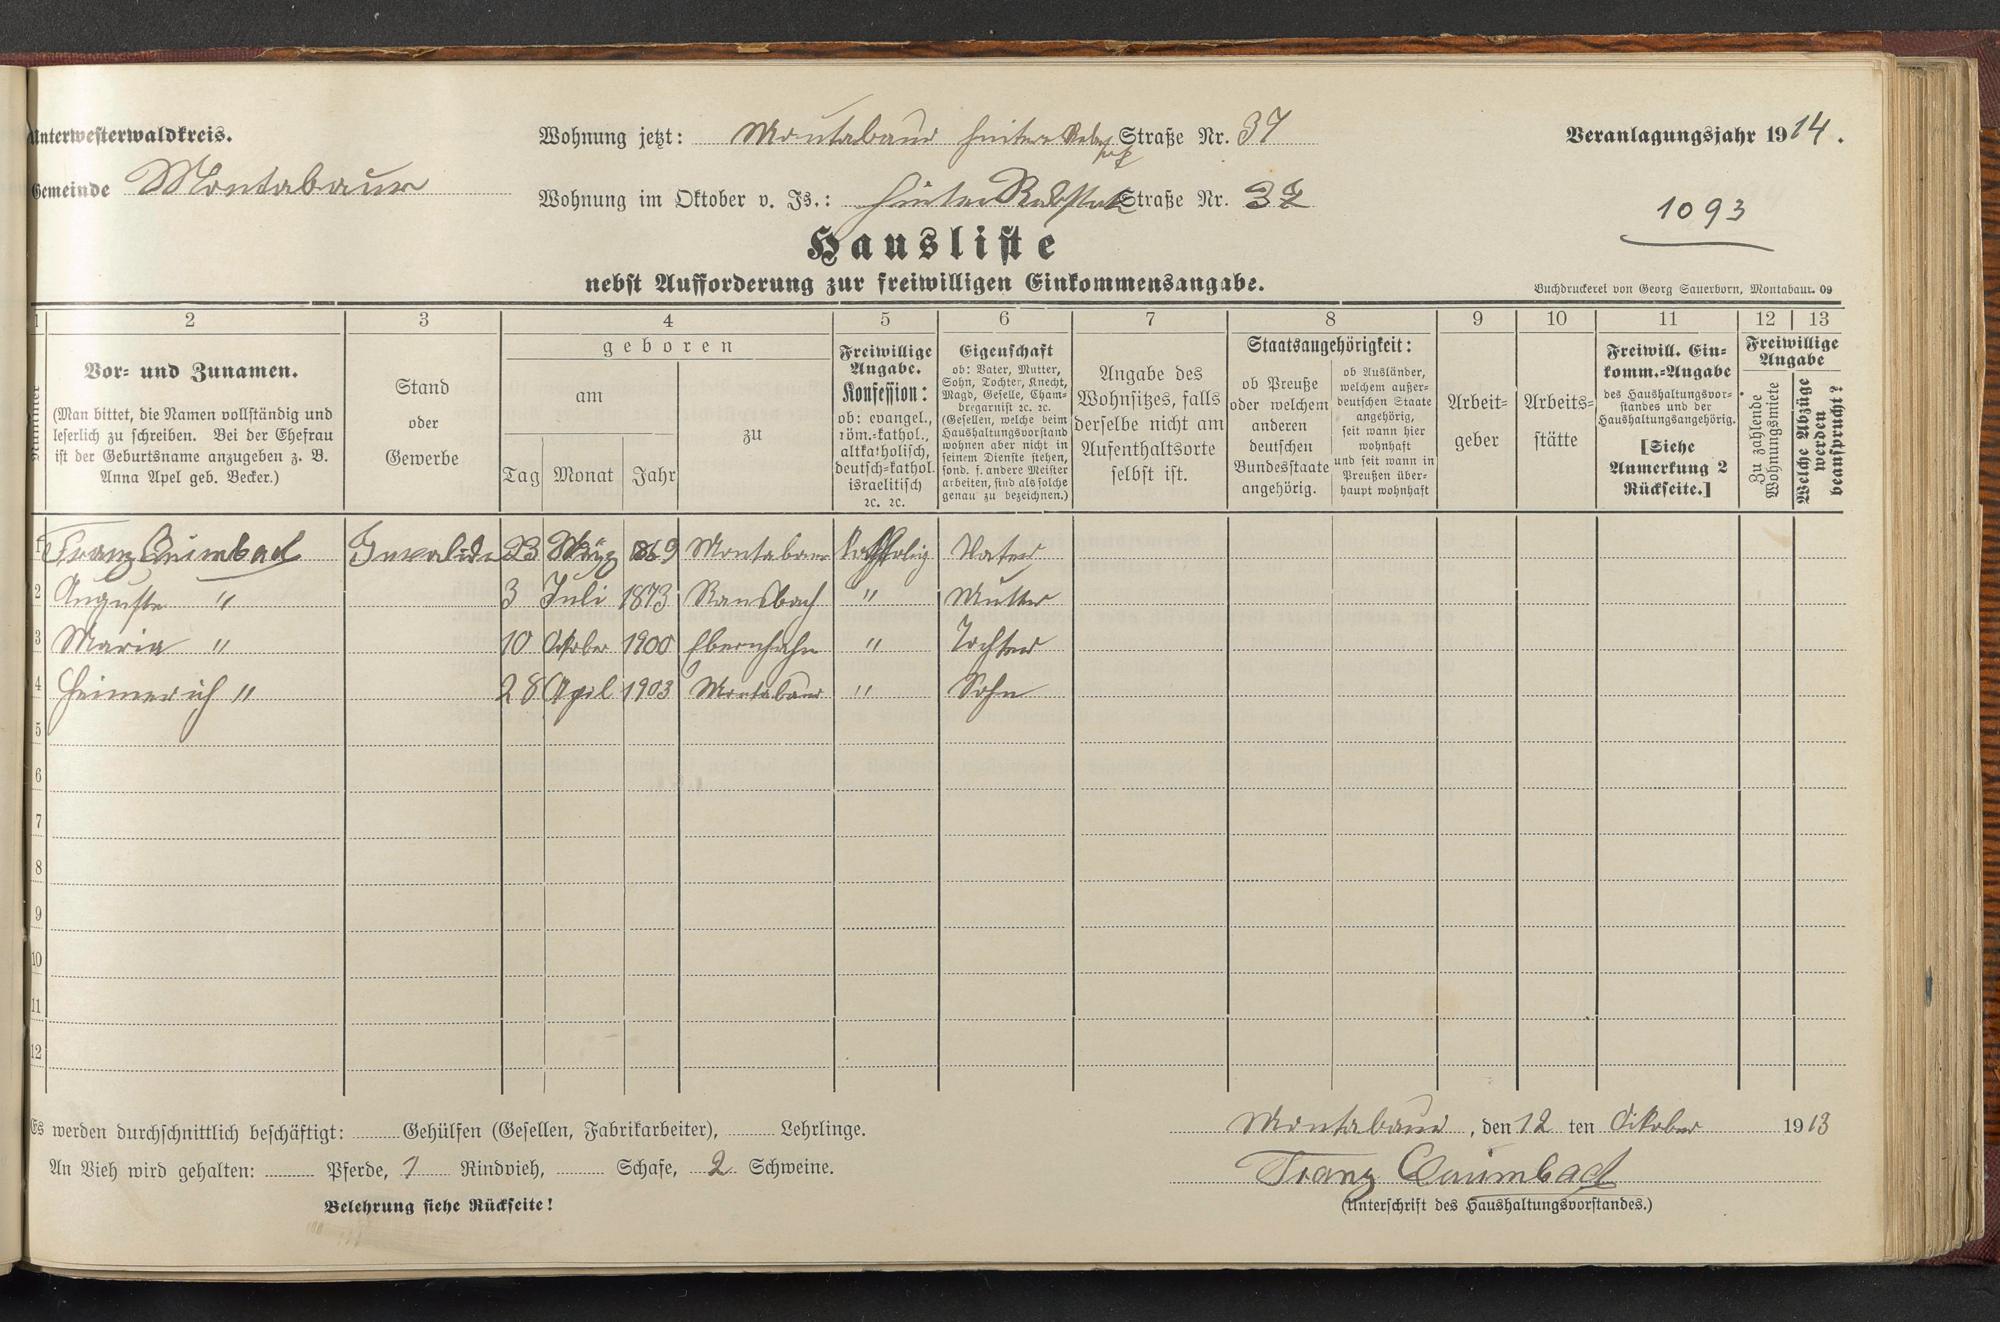 Unterwesterwaldkreis.
Gemeinde Montabaur
Wohnung jetzt: Montabaur hintere Straße Nr. 37
Wohnung im Oktober v. Js.: Straße Nr. 37
Veranlagungsjahr 1914.
1093
Hausliste
nebst Aufforderung zur freiwilligen Einkommensangabe.
Buchdruckerei von Georg Sauerborn, Montabaur. 09
1 2 3 4 5 6 7 8 9 10 11 12 13
Nummer
Vor- und Zunamen.
(Man bittet, die Namen vollständig und
leserlich zu schreiben. Bei der Ehefrau
ist der Geburtsname anzugeben z. B.
Anna Apel geb. Becker.)
Stand
oder
Gewerbe
geboren
am
Tag Monat Jahr
zu
Freiwillige
Angabe.
Konfession:
ob: evangel.,
röm.-kathol.,
altkatholisch,
deutsch-kathol.
israelitisch
ꝛc. ꝛc.
Eigenschaft
ob: Vater, Mutter,
Sohn, Tochter, Knecht,
Magd, Geselle, Cham-
bregarnist ꝛc. ꝛc.
(Gesellen, welche beim
Haushaltungsvorstand
wohnen aber nicht in
seinem Dienste stehen,
sond. f. andere Meister
arbeiten, sind als solche
genau zu bezeichnen.)
Angabe des
Wohnsitzes, falls
derselbe nicht am
Aufenthaltsorte
selbst ist.
Staatsangehörigkeit:
ob Preuße
oder welchem
anderen
deutschen
Bundesstaate
angehörig.
ob Ausländer,
welchem außer-
deutschen Staate
angehörig,
seit wann hier
wohnhaft
und seit wann in
Preußen über-
haupt wohnhaft
Arbeit-
geber
Arbeits-
stätte
Freiwill. Ein-
komm.-Angabe
des Haushaltungsvor-
standes und der
Haushaltungsangehörig.
[Siehe
Anmerkung 2
Rückseite.]
Freiwillige
Angabe
Zu zahlende
Wohnungsmiete
Welche Abzüge
werden
beansprucht?
1 Franz Quirmbach Invalide 23 März 1869 Montabaur Katholig Vater
2 Auguste " 3 Juli 1873 Ransbach " Mutter
3 Maria " 10 Oktober 1900 Ebernhahn " Tochter
4 Heinerich " 28 April 1903 Montabaur " Sohn
5
6
7
8
9
10
11
12
Es werden durchschnittlich beschäftigt: Gehülfen (Gesellen, Fabrikarbeiter), Lehrlinge.
An Vieh wird gehalten: Pferde, 1 Rindvieh, Schafe, 2 Schweine.
Belehrung siehe Rückseite!
Montabaur, den 12 ten Oktober 1913
Franz Quirmbach
(Unterschrift des Haushaltungsvorstandes.)